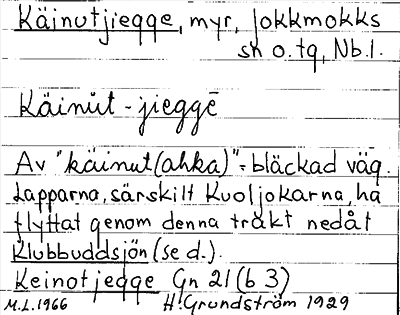 Käinutjiegge, myr, Jokkmokks
sn o. tg, Nb.l.
Käinūt - jieggē
Av "käinut(ahka)" = bläckad väg.
Lapparna, särskilt Kuoljokarna, ha
flyttat genom denna trakt nedåt
Klubbuddsjön (se d.).
Keinotjegge Gn 21 (b 3)
M.L. 1966 H. Grundström 1929